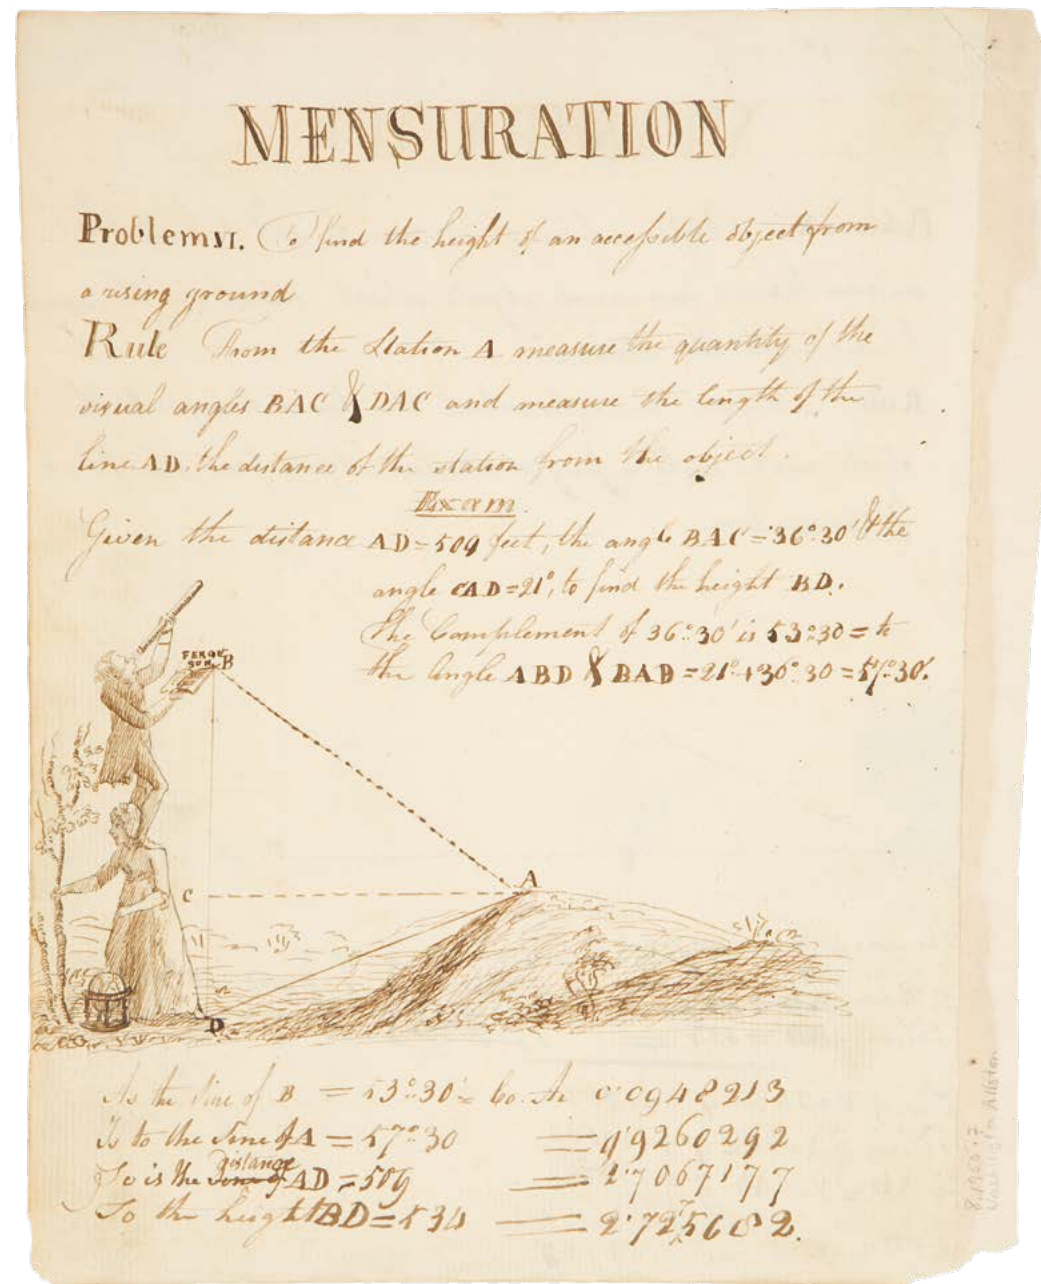 MENSURATION
Problem VI. To find the height of an accessible object from
a rising ground
Rule From the Station A measure the quantity of the
visual angles BAC & DAC and measure the length of the
line AD, the distance of the station from the object.
Exam.
Given the distance AD=509 feet, the angle BAC=36°30' & the
angle CAD=21°, to find the height BD.
The Complement of 36°30' is 53°30 = to
the Angle ABD & BAD=21°+36°30=57°30'.
FERGU
SON
B
A
C
D
As the Sine of B = 53°30' = Co. Ar 0.0948213
Is to the Sine of A = 57°30 = 9.9260292
distance
So is the Sine of AD = 509 = 2.7067177
To the height BD = 534 = 2.725682.
8.1365.7
Allston